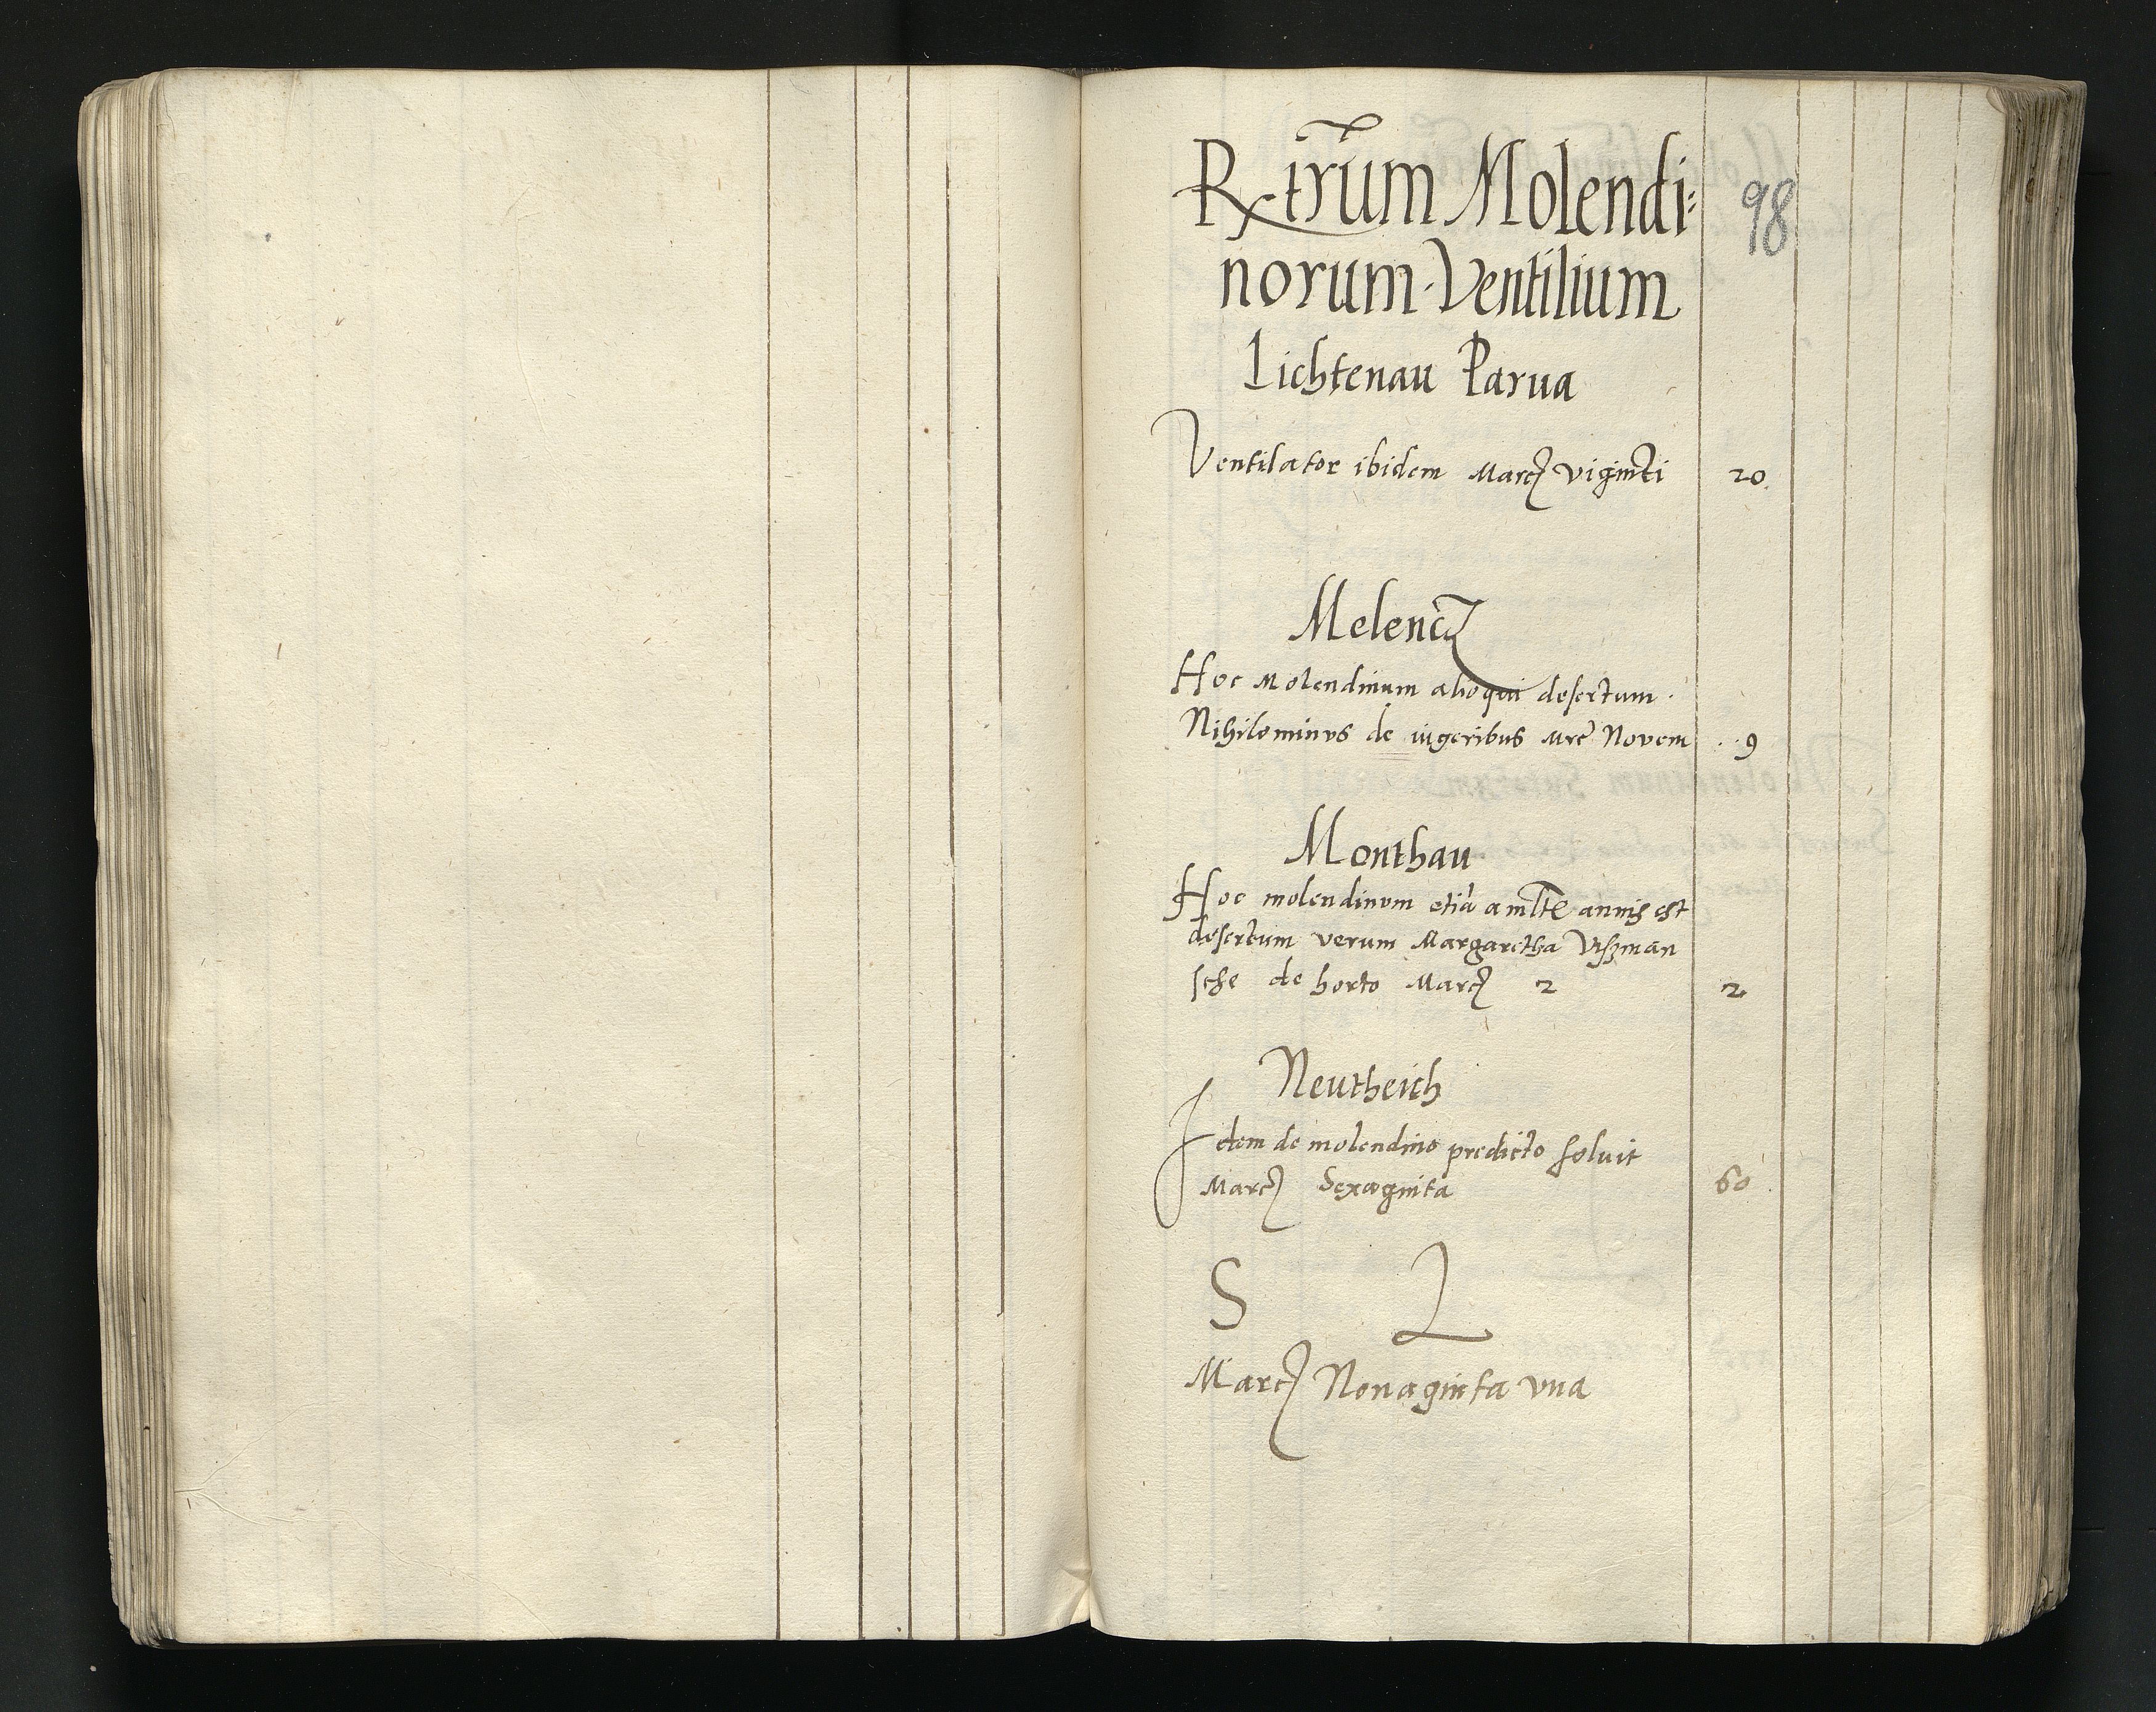 Rxtrũm Molendi⸗ 98
norum Ventilium
Lichtenau Parua
Ventilator ibidem Marcꝫ viginti 20
Melencz
Hoc Molendinum alioqui desertum.
Nihilominus de iugeribus Mrc Novem 9
Monthau
Hoc molendinum etiã a mlte annis est
desertum verum Margaretha
sche de horto Marcꝫ 2 2
Neutheich
Idem de molendino predicto soluit
Marcꝫ Sexaginta 60
S L
Marcꝫ Nonaginta vna